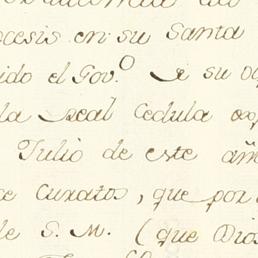 ocesis en su Santa
ido el Gov.º a su
la Real Cedula
Julio de este añ
e Curatos, que por
de S. M. (que Dios